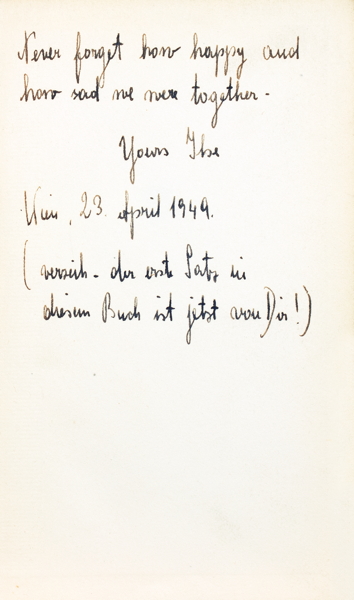 Never forget how happy and
how sad we were together -
Yours Ilse
Wien, 23. April 1949.
(verzeih - der erste Satz in
diesem Buch ist jetzt von Dir!)